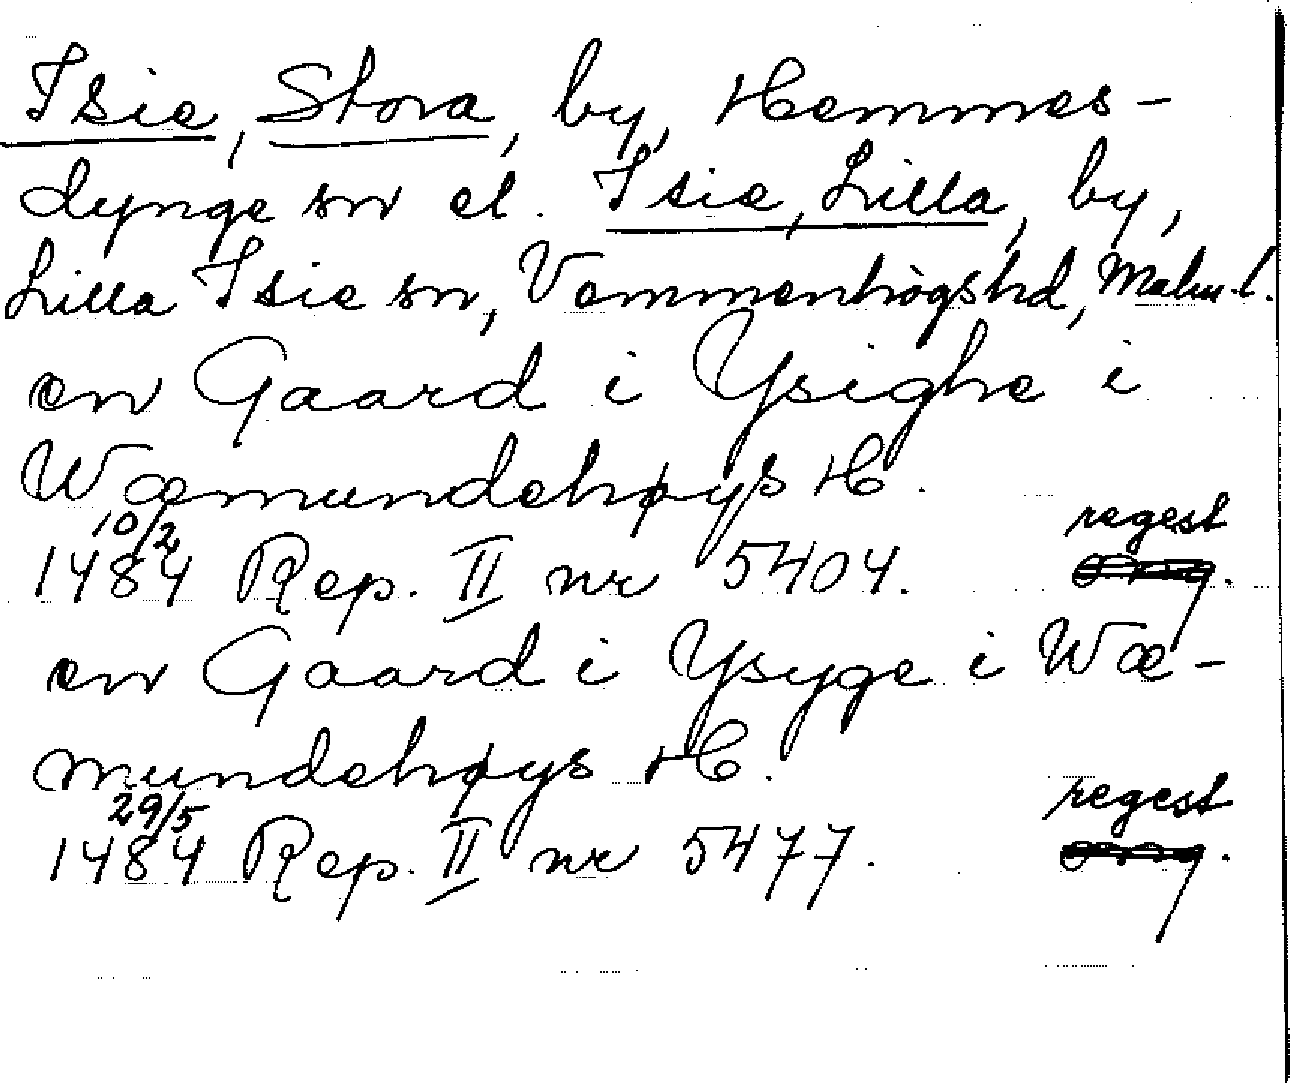 Isie, Stora, by, Hemmes-
dynge sn el. Isie, Lilla, by,
Lilla Isie sn, Vemmenhögs hd, Malm. l.
en Gaard i Ysighe i
Wæmundehøys H.
10/2 regest
1484 Rep. II nr 5404.
en Gaard i Ysyge i Wæ-
mundehøys H.
29/5 regest
1484 Rep. II nr 5477.